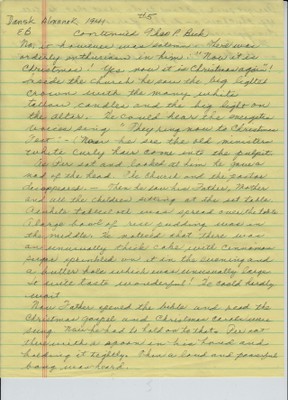 #5
Dansk Almanak 1941
EB continued Theo P. Beck
No, it however was solemn. There was
orderly enthusiasm in him! "Now it is
Christmas! Yes now it is Christmas again"!
Inside the church he saw the big lighted
crown with the many white
tallow candles and the big light on
the altar. He could hear the energetic
song "They ring now to Christmas
Fest". Now he saw the old ministers
white curly hair come into the pulpit.
As Per sat and looked at him he gave a
nod of the head. The Church and the pastor
disappeared — Then he saw his Father, Mother
and all the children sitting at the set table
A white tablecloth was spread over the table
A large bowl of rice pudding was in
the middle. He noticed that there was
an unusually thick cake with Cinnamon
sugar sprinkled on it in the evening and
a butter hole which was unusually large
It will taste wonderful! He could hardly
wait
Now Father opened the bible and read the
Christmas gospel and Christmas carols were
sung. Now he had to hold on to that. Per sat
there with a spoon in his hand and
holding it tightly. Then a loud and powerful
bang was heard.